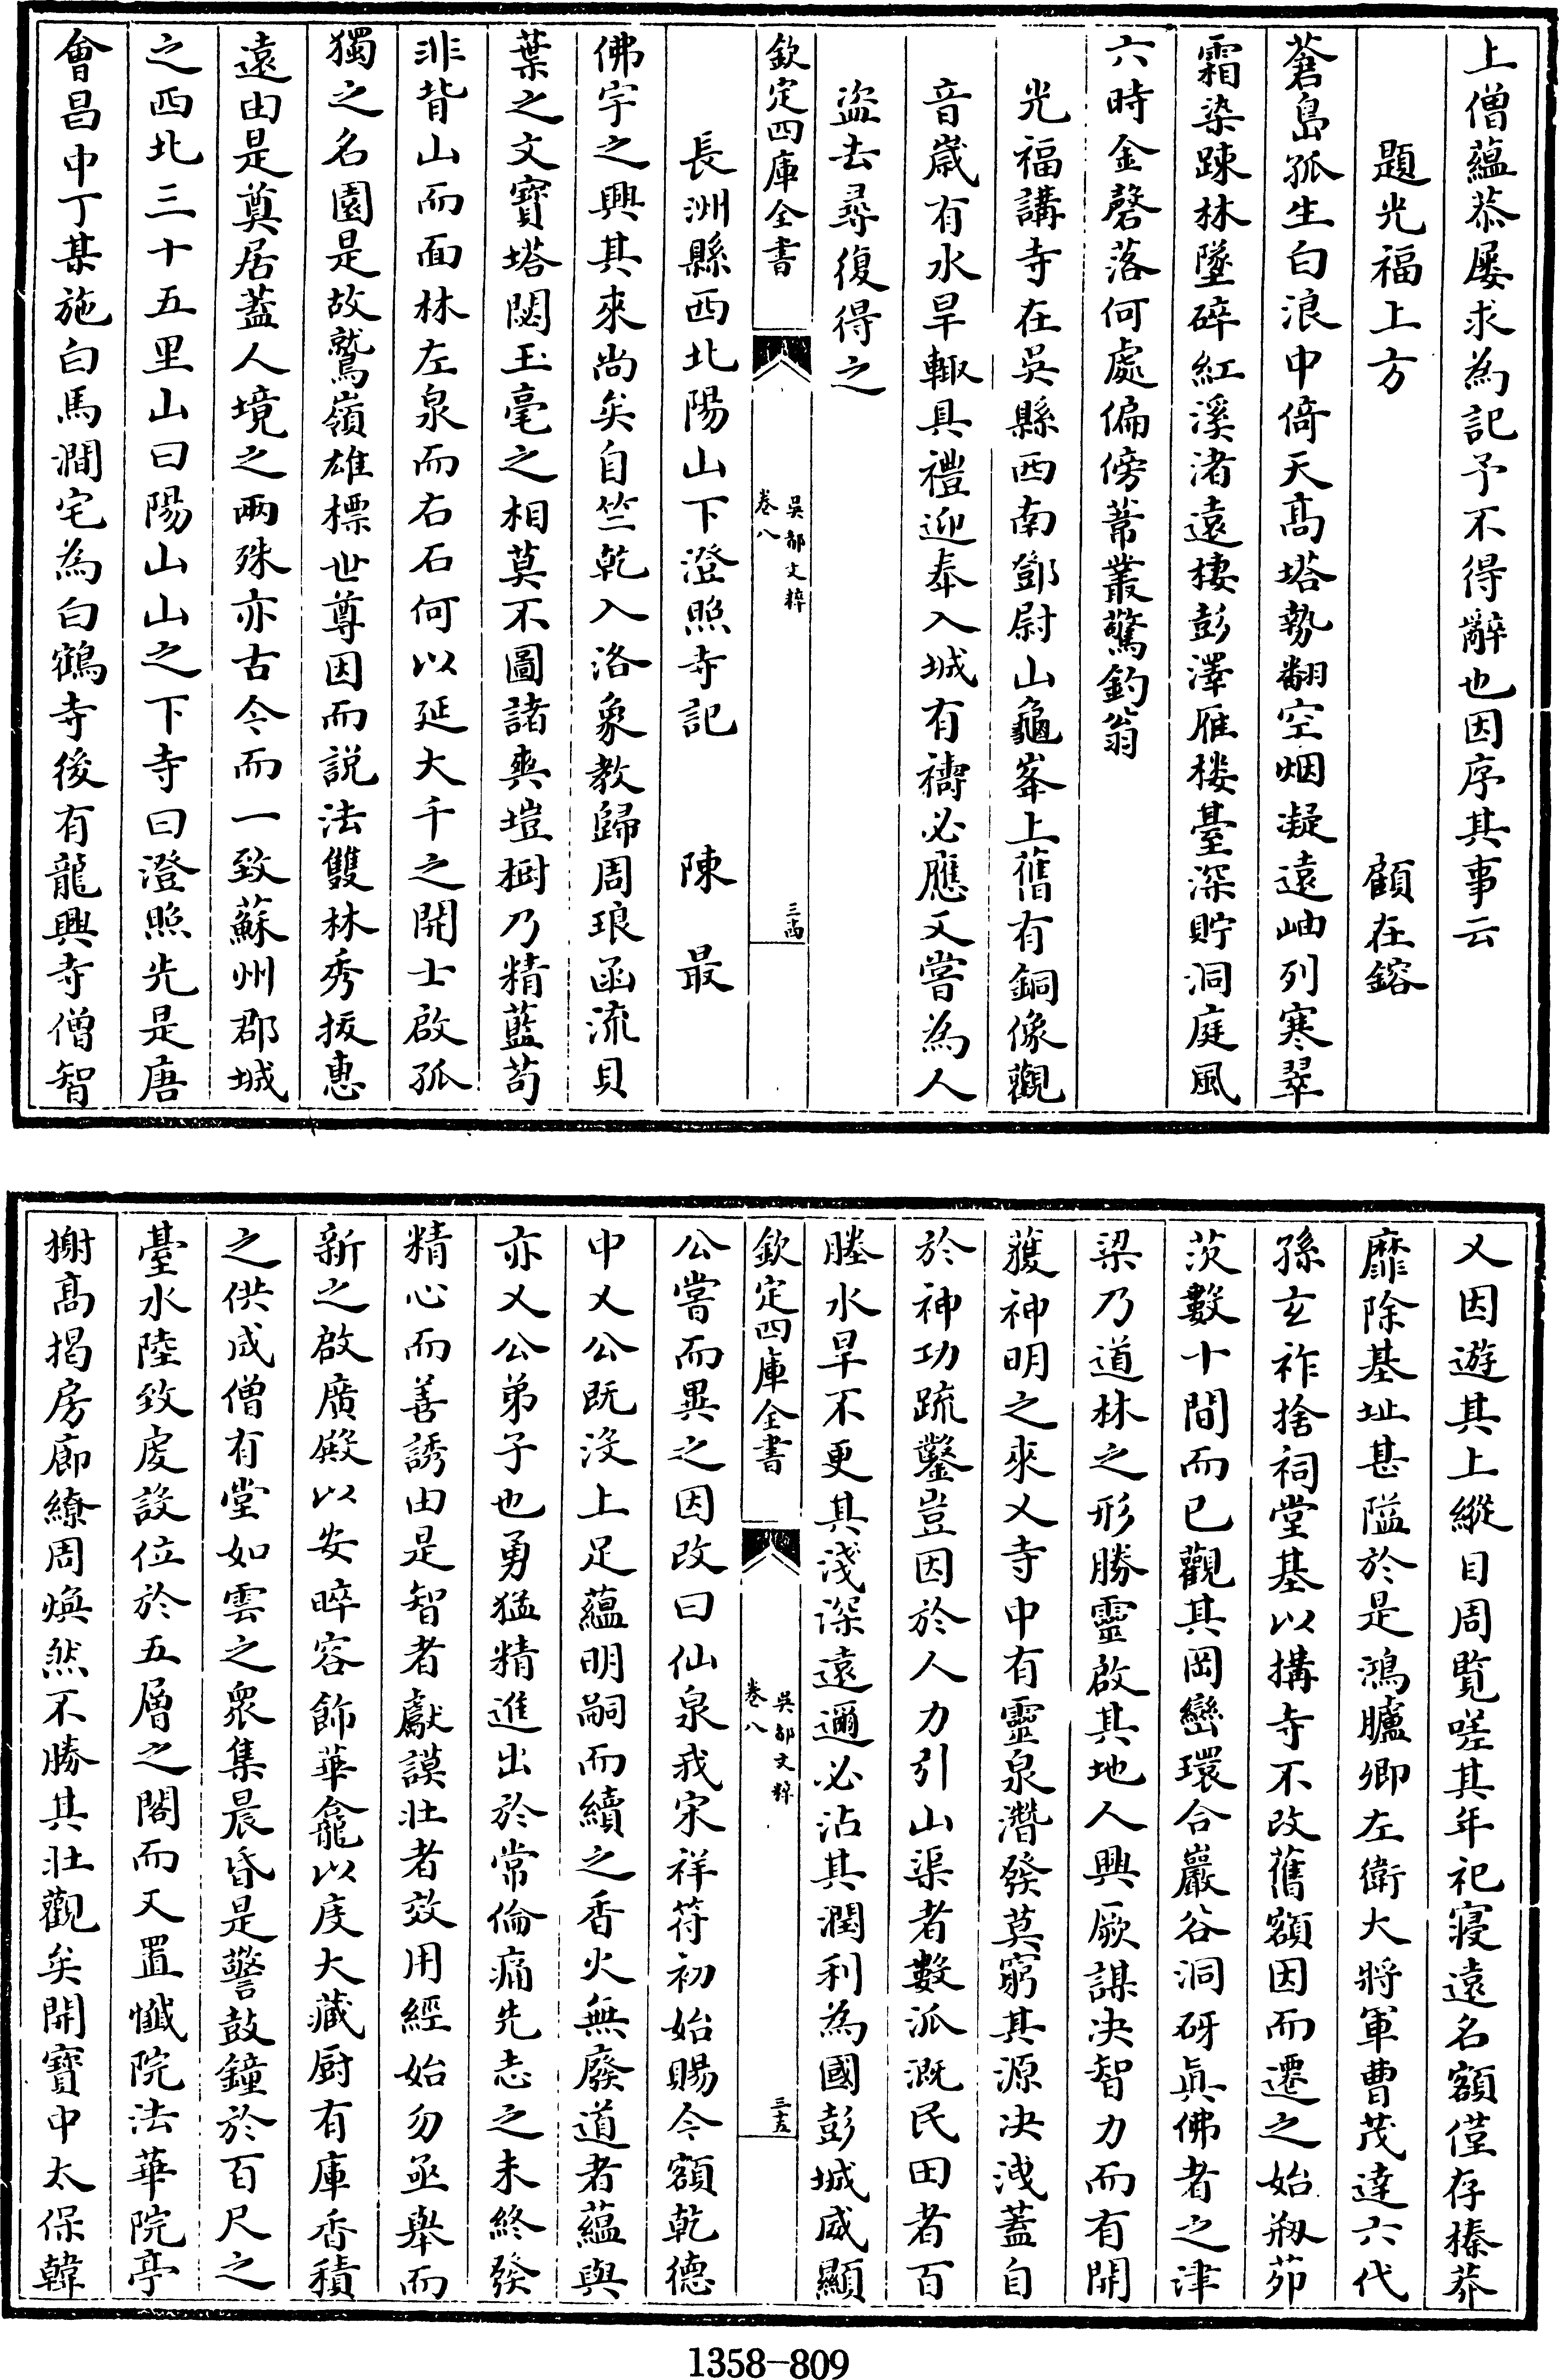 上僧蘊恭屢求為記予不得辭也因序其事云
題光福上方 顧在鎔
蒼島孤生白浪中倚天髙塔勢翻空烟凝遠岫列寒翠
霜染踈林墜碎紅溪渚遠棲彭澤雁楼臺深貯洞庭風
六時金磬落何處偏傍葦叢驚釣翁
光福講寺在吳縣西南鄧尉山龜峯上舊有銅像觀
音歲有水旱輙具禮迎奉入城有禱必應又嘗為人
盗去尋復得之
欽定四庫全書 吳都文粹 卷八 三十四
長洲縣西北陽山下澄照寺記 陳 最
佛宇之興其來尚矣自竺乾入洛象教歸周琅函流貝
葉之文寳塔閟玉毫之相莫不圖諸爽塏樹乃精藍茍
非背山而面林左泉而右石何以延大千之開士啟孤
獨之名園是故鷲嶺雄標世尊因而説法雙林秀拔惠
遠由是奠居蓋人境之兩殊亦古今而一致蘇州郡城
之西北三十五里山曰陽山山之下寺曰澄照先是唐
會昌中丁某施白馬澗宅為白鶴寺後有龍興寺僧智
乂因遊其上縱目周覧嗟其年祀寖遠名額僅存榛莽
靡除基址甚隘於是鴻臚卿左衛大將軍曹茂達六代
孫玄祚捨祠堂基以搆寺不改舊額因而遷之始剏茆
茨數十間而已觀其岡巒環合巖谷洞砑真佛者之津
梁乃道林之形勝靈啟其地人興厥謀决智力而有開
蒦神明之來乂寺中有靈泉濳發莫窮其源决洩蓋自
於神功疏鑿豈因於人力引山渠者數派溉民田者百
塍水旱不更其淺深遠邇必沾其潤利為國彭城威顯
欽定四庫全書 吳都文粹 卷八 三十五
公嘗而異之因改曰仙泉我宋祥符初始賜今額乾德
中乂公既沒上足蘊明嗣而續之香火無廢道者蘊與
亦乂公弟子也勇猛精進出於常倫痛先志之未終發
精心而善誘由是智者獻謨壯者效用經始勿亟舉而
新之啟廣殿以安晬容飾華龕以庋大藏厨有庫香積
之供成僧有堂如雲之衆集晨昏是警鼓鐘於百尺之
臺水陸致䖍設位於五層之閣而又置懺院法華院亭
榭髙揭房廊繚周煥然不勝其壯觀矣開寳中太保韓
1358-809